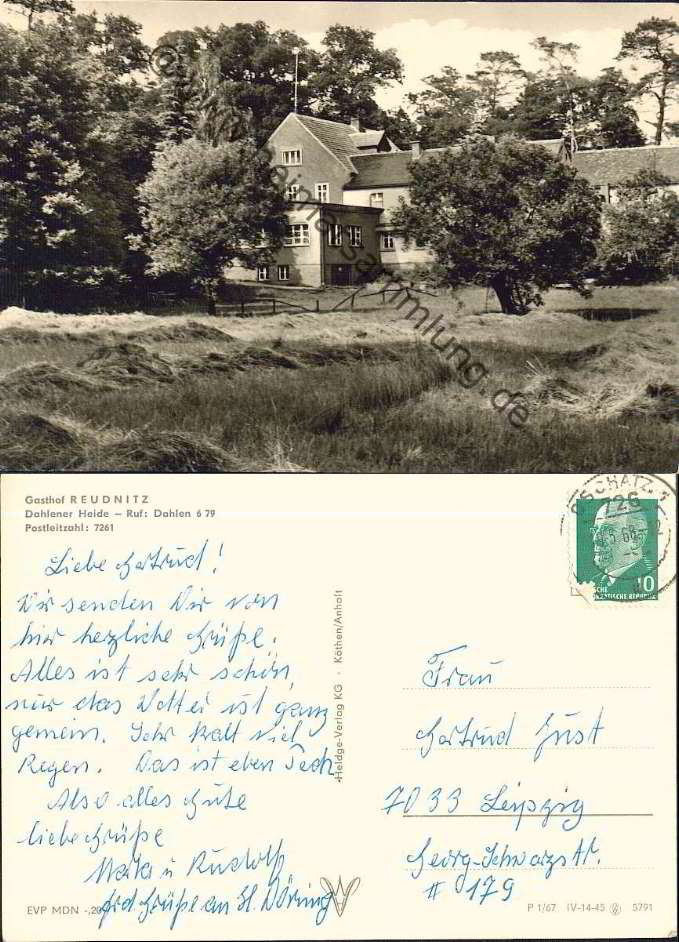 ansichtskartensammlung.de
Gasthof REUDNITZ
Dahlener Heide – Ruf: Dahlen 6 79
Postleitzahl: 7261
OSCHATZ 1
726
DEUTSCHE
DEMOKRATISCHE REPUBLIK
10
Liebe Gertrud!
Wir senden Dir von
hier herzliche Grüße.
Alles ist sehr schön,
nur das Wetter ist ganz
gemein. Sehr kalt viel
Regen. Das ist eben Pech
Also alles Gute
liebe Grüße
u Rudolf
Grüße an
Heldge-Verlag KG · Köthen/Anhalt
Frau
Gertrud Just
7033 Leipzig
Georg-Schwarzstr.
179
EVP MDN -,20
P 1/67 IV-14-45 5791